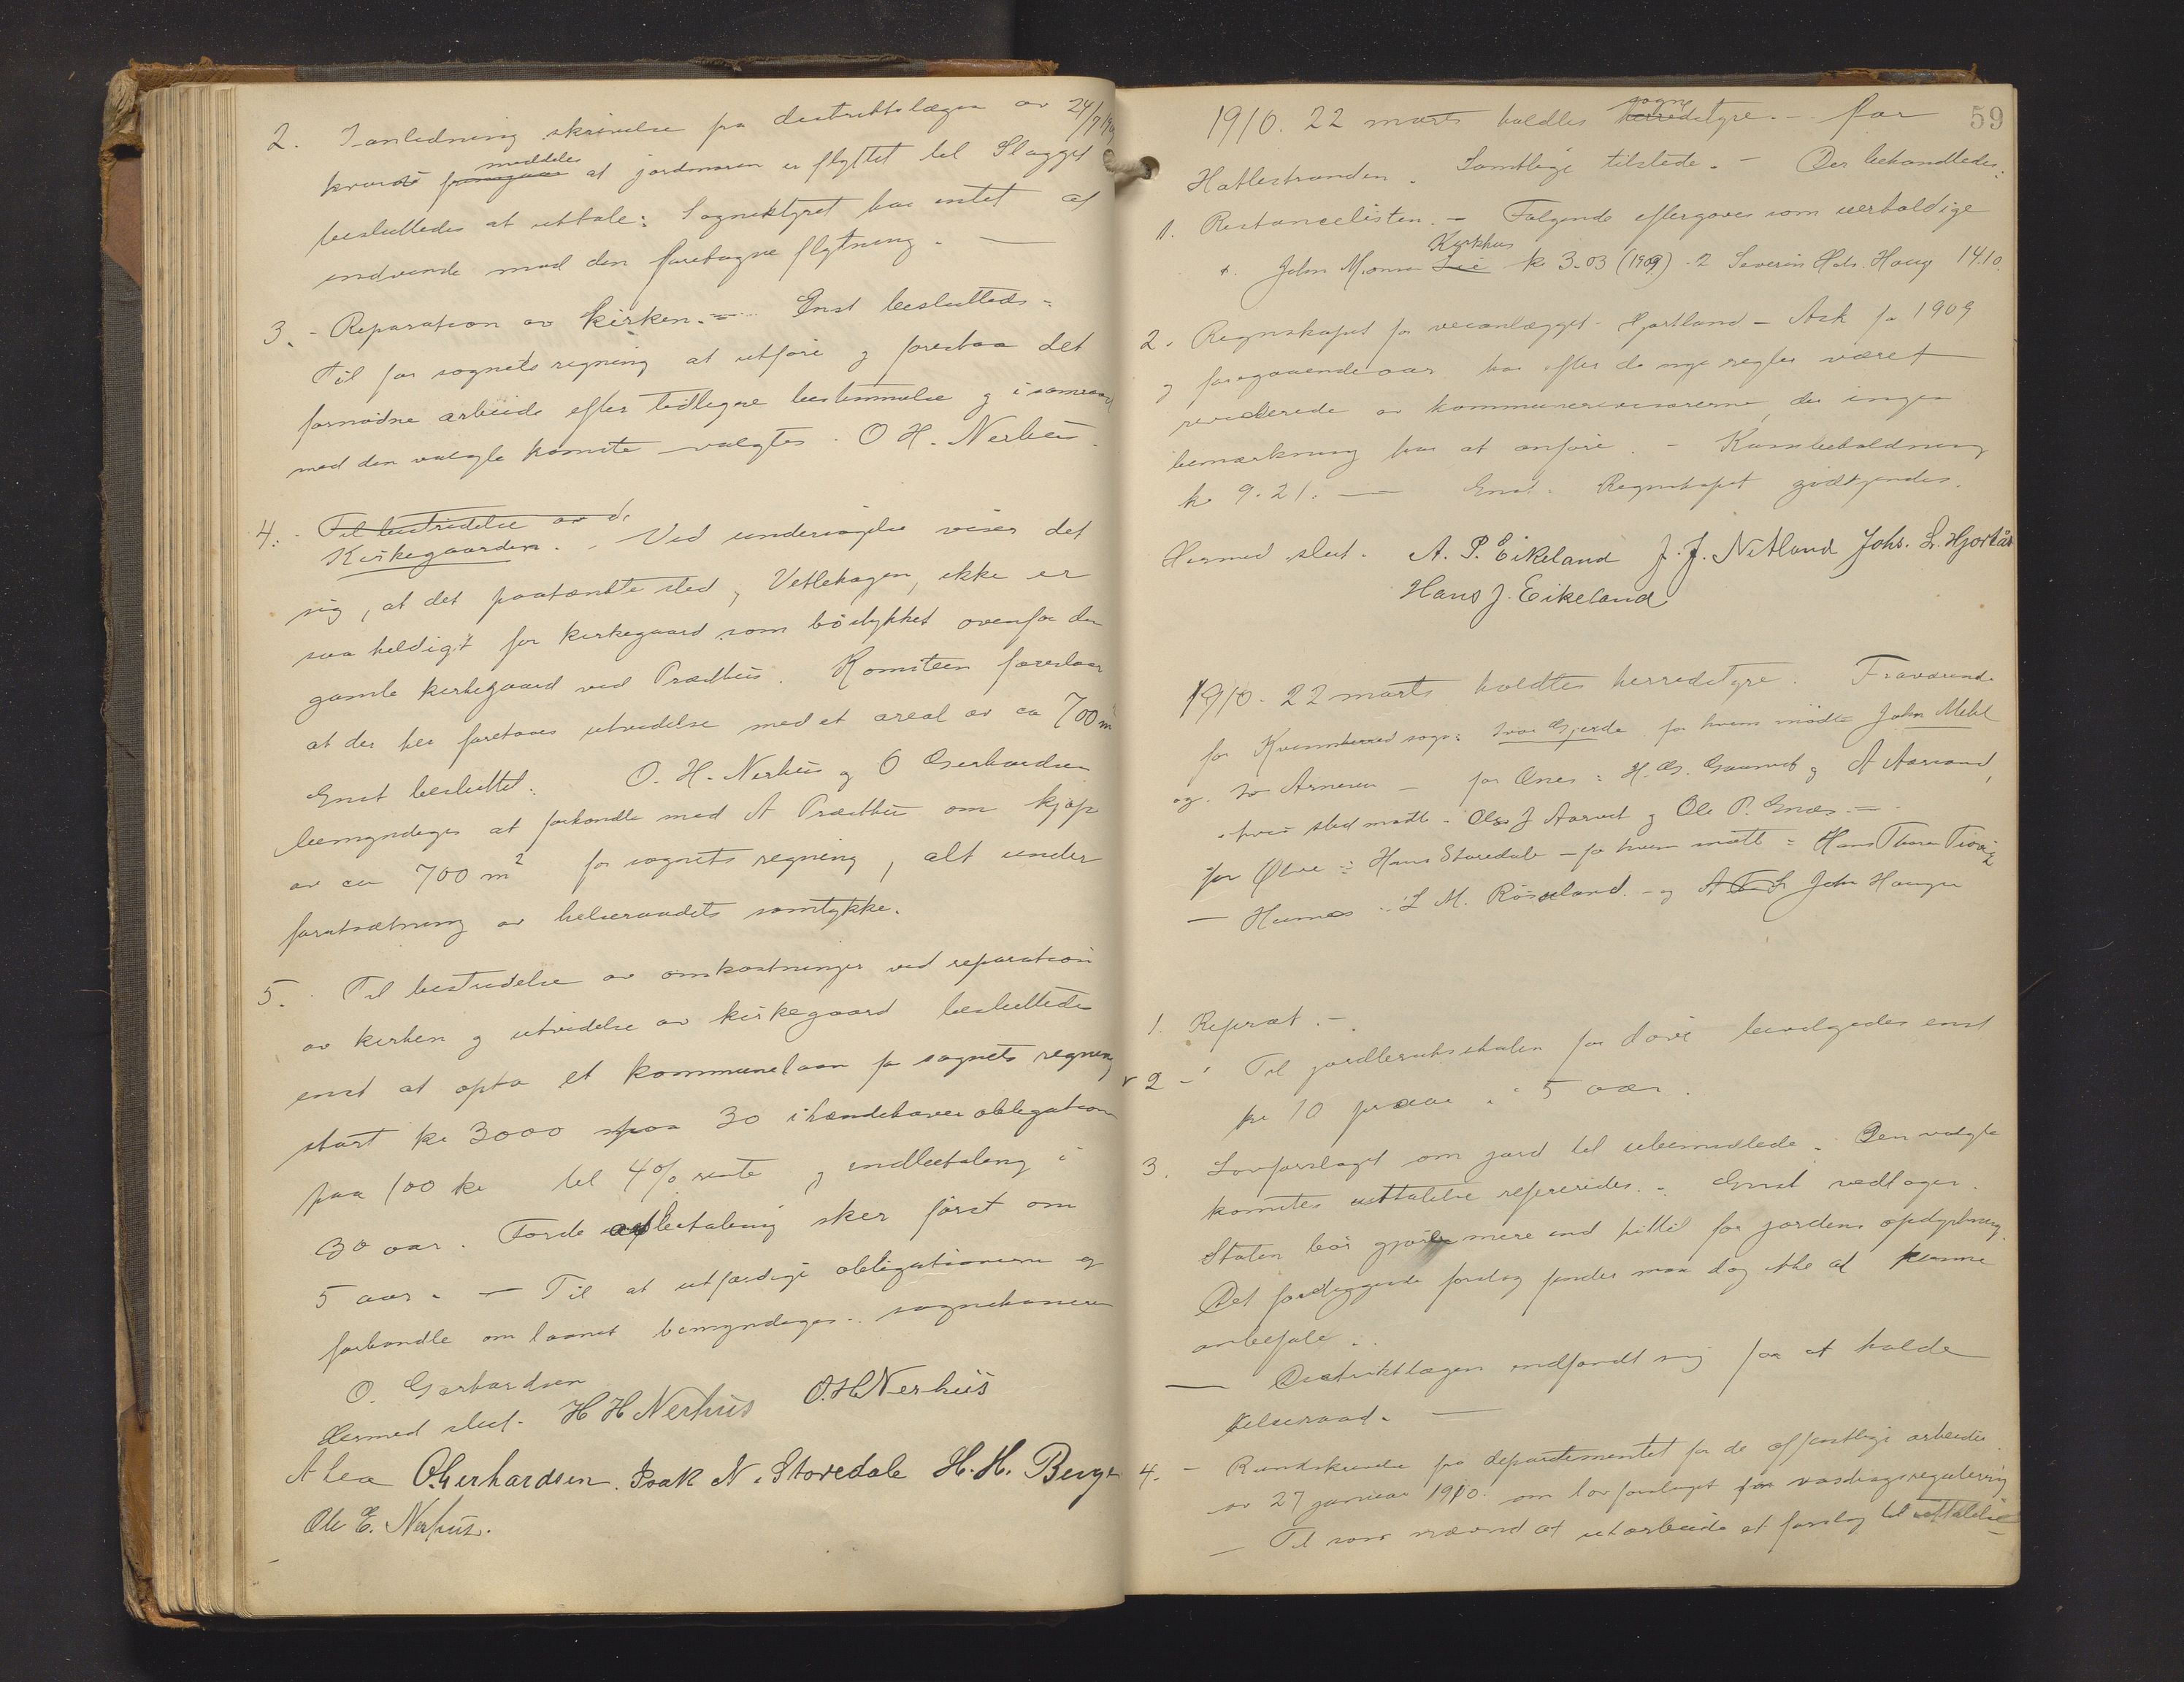 2. I anledning skrivelse fra distriktslægen av 24/
hvori meddeles at jordmoren er flyttet til Slagget
besluttedes at uttale: Sognestyret har intet at
indvende mod den foretagne flytning. —
3. - Reparation av kirken. — Enst besluttedes:
Til for sognets regning at utføre og forestaa det
fornødne arbeide efter tidligere bestemmelse og i samraad
med den valgte komite valgtes. O H. Nerhus.
4. Til bestridelse av d
Kirkegaarden. - Ved undersøgelse viser det
sig, at det paatænkte sted, Vetlehagen, ikke er
saa heldigt for kirkegaard som böstykket ovenfor den
gamle kirkegaard ved Præsthus. Komiteen foreslaar
at der her foretages utvidelse med et areal av ca 700 m
Enst besluttet: O. H. Nerhus og O Gerhardsen
bemyndiges at forhandle med A Præsthus om kjøp
av ca 700 m² for sognets regning, alt under
forutsætning av helseraadets samtykke.
5. Til bestridelse av omkostninger ved reparation
av kirken og utvidelse av kirkegaard besluttedes
enst at opta et kommunelaan for sognets regning
stort kr 3000 paa 30 ihændehaver obligation
paa 100 kr til 4% rente og indbetaling i
30 aar. Første avbetaling sker først om
5 aar. — Til at utfærdige obligationerne og
forhandle om laanet bemyndiges sognekasserer
O. Gerhardsen
Hermed slut. H H Nerhus O.H Nerhus
A Lea O. Gerhardsen. Isak N. Storedale H. H. Berge
Ole E. Nerhus.
59
1910. 22 marts holdtes sogne herredstyre. - for
Hatlestranden. Samtlige tilstede. - Der behandledes:
1. Restancelisten. - Følgende eftergaves som uerholdige
1. John Monsen Lie Kirkhus kr 3.03 (1909) 2 Severin Hals. Haug 14.10.
2. Regnskapet for veianlægget Hjortland - Ask for 1909
og foregaaende aar har efter de nye regler været
reviderede av kommunerevisorerne, der ingen
bemærkning har at anføre. - Kassebeholdning
kr 9.21. — Enst. Regnskapet godkjendes.
Hermed slut. A. P. Eikeland J. J. Nitland Johs. L. Hjortås
Hans J. Eikeland
1910. 22 marts holdtes herredstyre. Fraværende
for Kvinnherred sogn: Ivar Gjerde for hvem mødte John Mehl
og Arnesen - for Ænes: H. G. Gaarvik og A Aarsand,
i hvis sted mødte Ols J Aarvik og Ole P. Ænæs. -
for Ølve: Hans Storedale - for hvem møtte: Hans
— Husnes: L M. Røseland - og John Haugen
1. Referat. -
2 - Til jordbruksskolen for døve bevilgedes enst
kr 10 pr aar i 5 aar.
3. Lovforslaget om jord til ubemidlede. Den valgte
komites uttalelse refereredes. - Enst vedtages.
Staten bør gjøre mere end hittil for jordens opdyrkning.
Det foreliggende forslag finder man dog ikke at kunne
anbefale.
— Distriktslægen indfandt sig for at holde
helseraad. —
4. - Rundskrivelse fra departementet for de offentlige arbeider
av 27 januar 1910. om lovforslaget for vasdragsregulering
— Til som nævnd at utarbeide et forslag til uttalelse